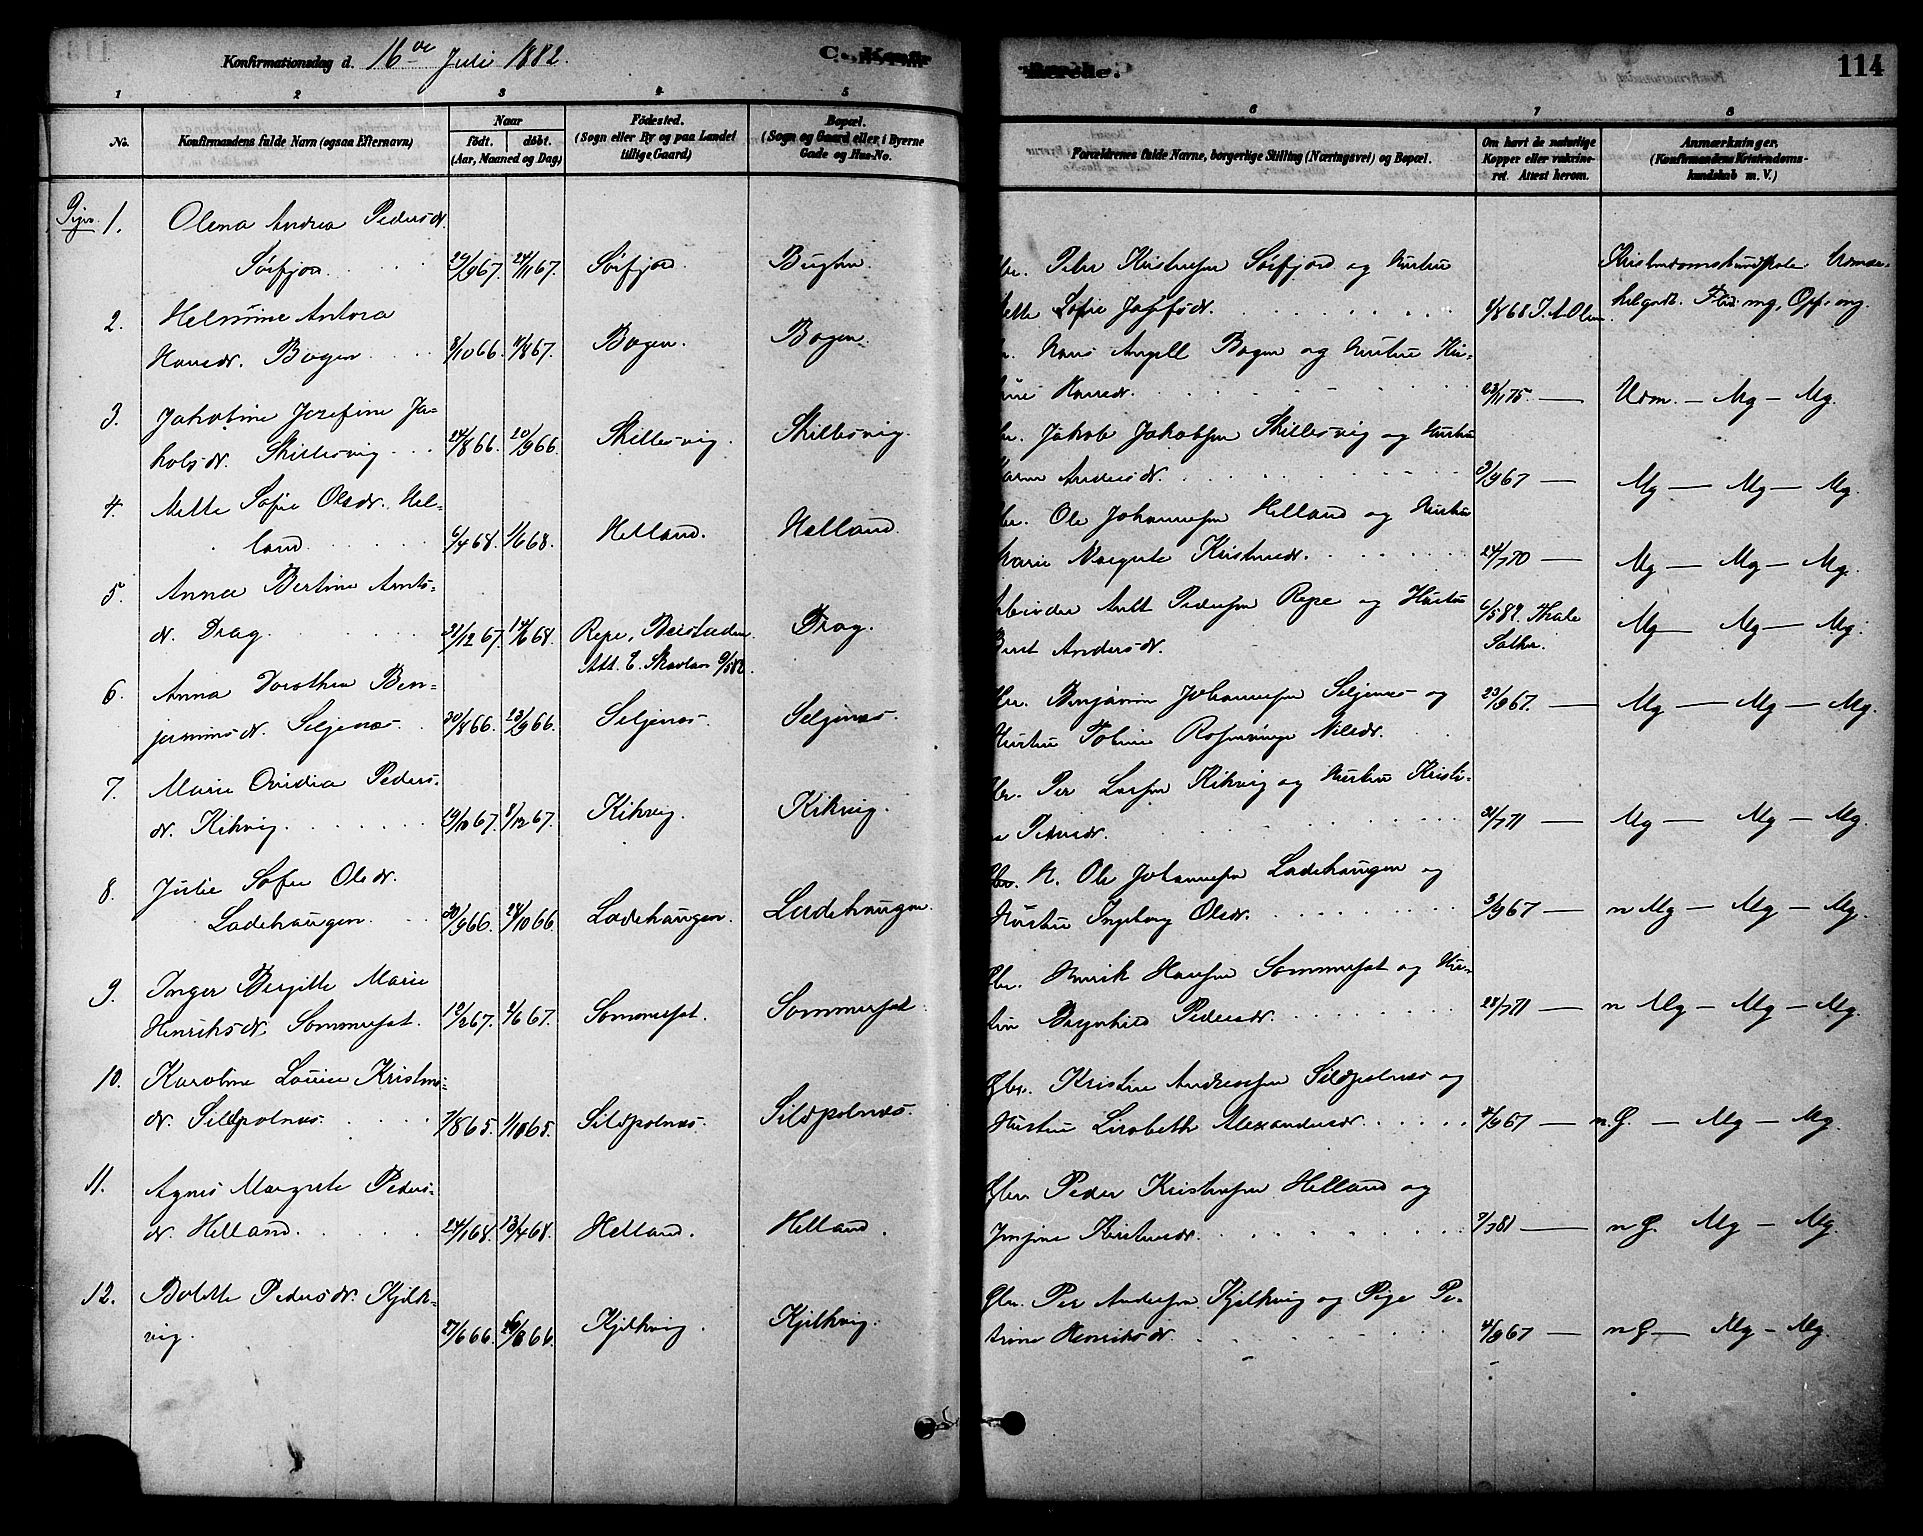 Konfirmationsdag d. 16de Juli 1882. C. Konfir
merede. 114
1 2 3 4 5 6 7 8
No. Konfirmandens fulde Navn (ogsaa Efternavn) Naar født. døbt. (Aar, Maaned og Dag) Fødested. (Sogn eller By og paa Landet tillige Gaard) Bopæl. (Sogn og Gaard eller i Byerne Gade og Hus-No. Forældrenes fulde Navne, borgerlige Stilling (Næringsvei) og Bopæl. Om havt de naturlige Kopper eller vakcineret. Attest herom. Anmærkninger. (Konfirmandens Kristendomskundskab m. V.)
Piger. 1. Olena Andrea Pedersdr.
Sørfjord 29/9 67. 24/11 67. Sørfjord. Bugten. Peder Kristensen Sørfjord og Hustru
Mette Sofie 1/8 68 Flid mg, Opf. mg.
2. Helmine Antora
Hansdr. Bogen 8/10 66. 11/8 67. Bogen. Bogen. Hans Angell Bogen og Hustru
Hansdr. 23/11 75. — Udm. — Mg — Mg.
3. Jakobine Josefine Ja-
kobsdr. Skillesvig 24/8 66. 20/9 66. Skillesvig. Skillesvig. Jakob Jakobsen Skillesvig og Hustru
Karen Andersdr. 3/9 67 — Mg — Mg — Mg.
4. Mette Sofie Olsdr. Hel-
land 6/4 68. 1/6 68. Helland. Helland. Gbr. Ole Johannesen Helland og Hustru
Marie Margrete Kristensdr. 24/7 70 — Mg — Mg — Mg.
5. Anna Bertine Arnts-
dr. Drag 31/12 67. 14/6 68. Repe, Beistaden. Drag. Arbeider Arnt Pedersen Repe og Hustru
Att. E. Skavlan 9/5 82 Beret Andersdr. 6/5 82. Mg — Mg — Mg.
6. Anna Dorothea Ben-
jaminsdr. Seljenæs 30/8 66. 23/9 66. Seljenæs. Seljenæs. Gbr. Benjamin Johannesen Seljenæs og
Hustru Nilsdr. 23/9 67. — Mg — Mg — Mg.
7. Marie Ovidia Peders-
dr. Kikvig. 19/10 67. 8/12 67. Kikvig. Kikvig. Gbr. Per Larsen Kikvig og Hustru Kristi-
Pedersdr. 31/7 71 — Mg — Mg — Mg.
8. Julie Sofie Olsdr.
Ladehaugen. 30/9 66. 24/10 66. Ladehaugen. Ladehaugen. Ole Johannesen Ladehaugen og
Hustru Ingeborg Olsdr. 3/9 67 — n Mg — Mg — Mg.
9. Inger Bergitte Marie
Henriksdr. Sommerset. 12/2 67. 4/6 67. Sommerset. Sommerset. Gbr. Henrik Hansen Sommerset og Hus-
tru Pedersdr. 28/7 71 — n Mg — Mg — Mg.
10. Karoline Lovise Kristens-
dr. Sildpolnæs 7/8 65. 1/10 65. Sildpolnæs. Sildpolnæs. Gbr. Kristen Andreassen Sildpolnæs og
Hustru Lisabeth Alexandersdr. 4/9 67 — n. G. — Mg — Mg.
11. Agnes Margrete Peders-
dr. Helland. 24/1 68. 13/4 68. Helland. Helland. Gbr. Peder Kristensen Helland og
Kristensdr. 7/7 81 — n G. Mg — Mg.
12. Bolette Pedersdr. Kjelk-
vig. 27/6 66. 26/8 66. Kjelkvig. Kjelkvig. Gbr. Per Andersen Kjelkvig og Pige Pe-
trine Henriksdr. 4/9 67 — n G — Mg — Mg.